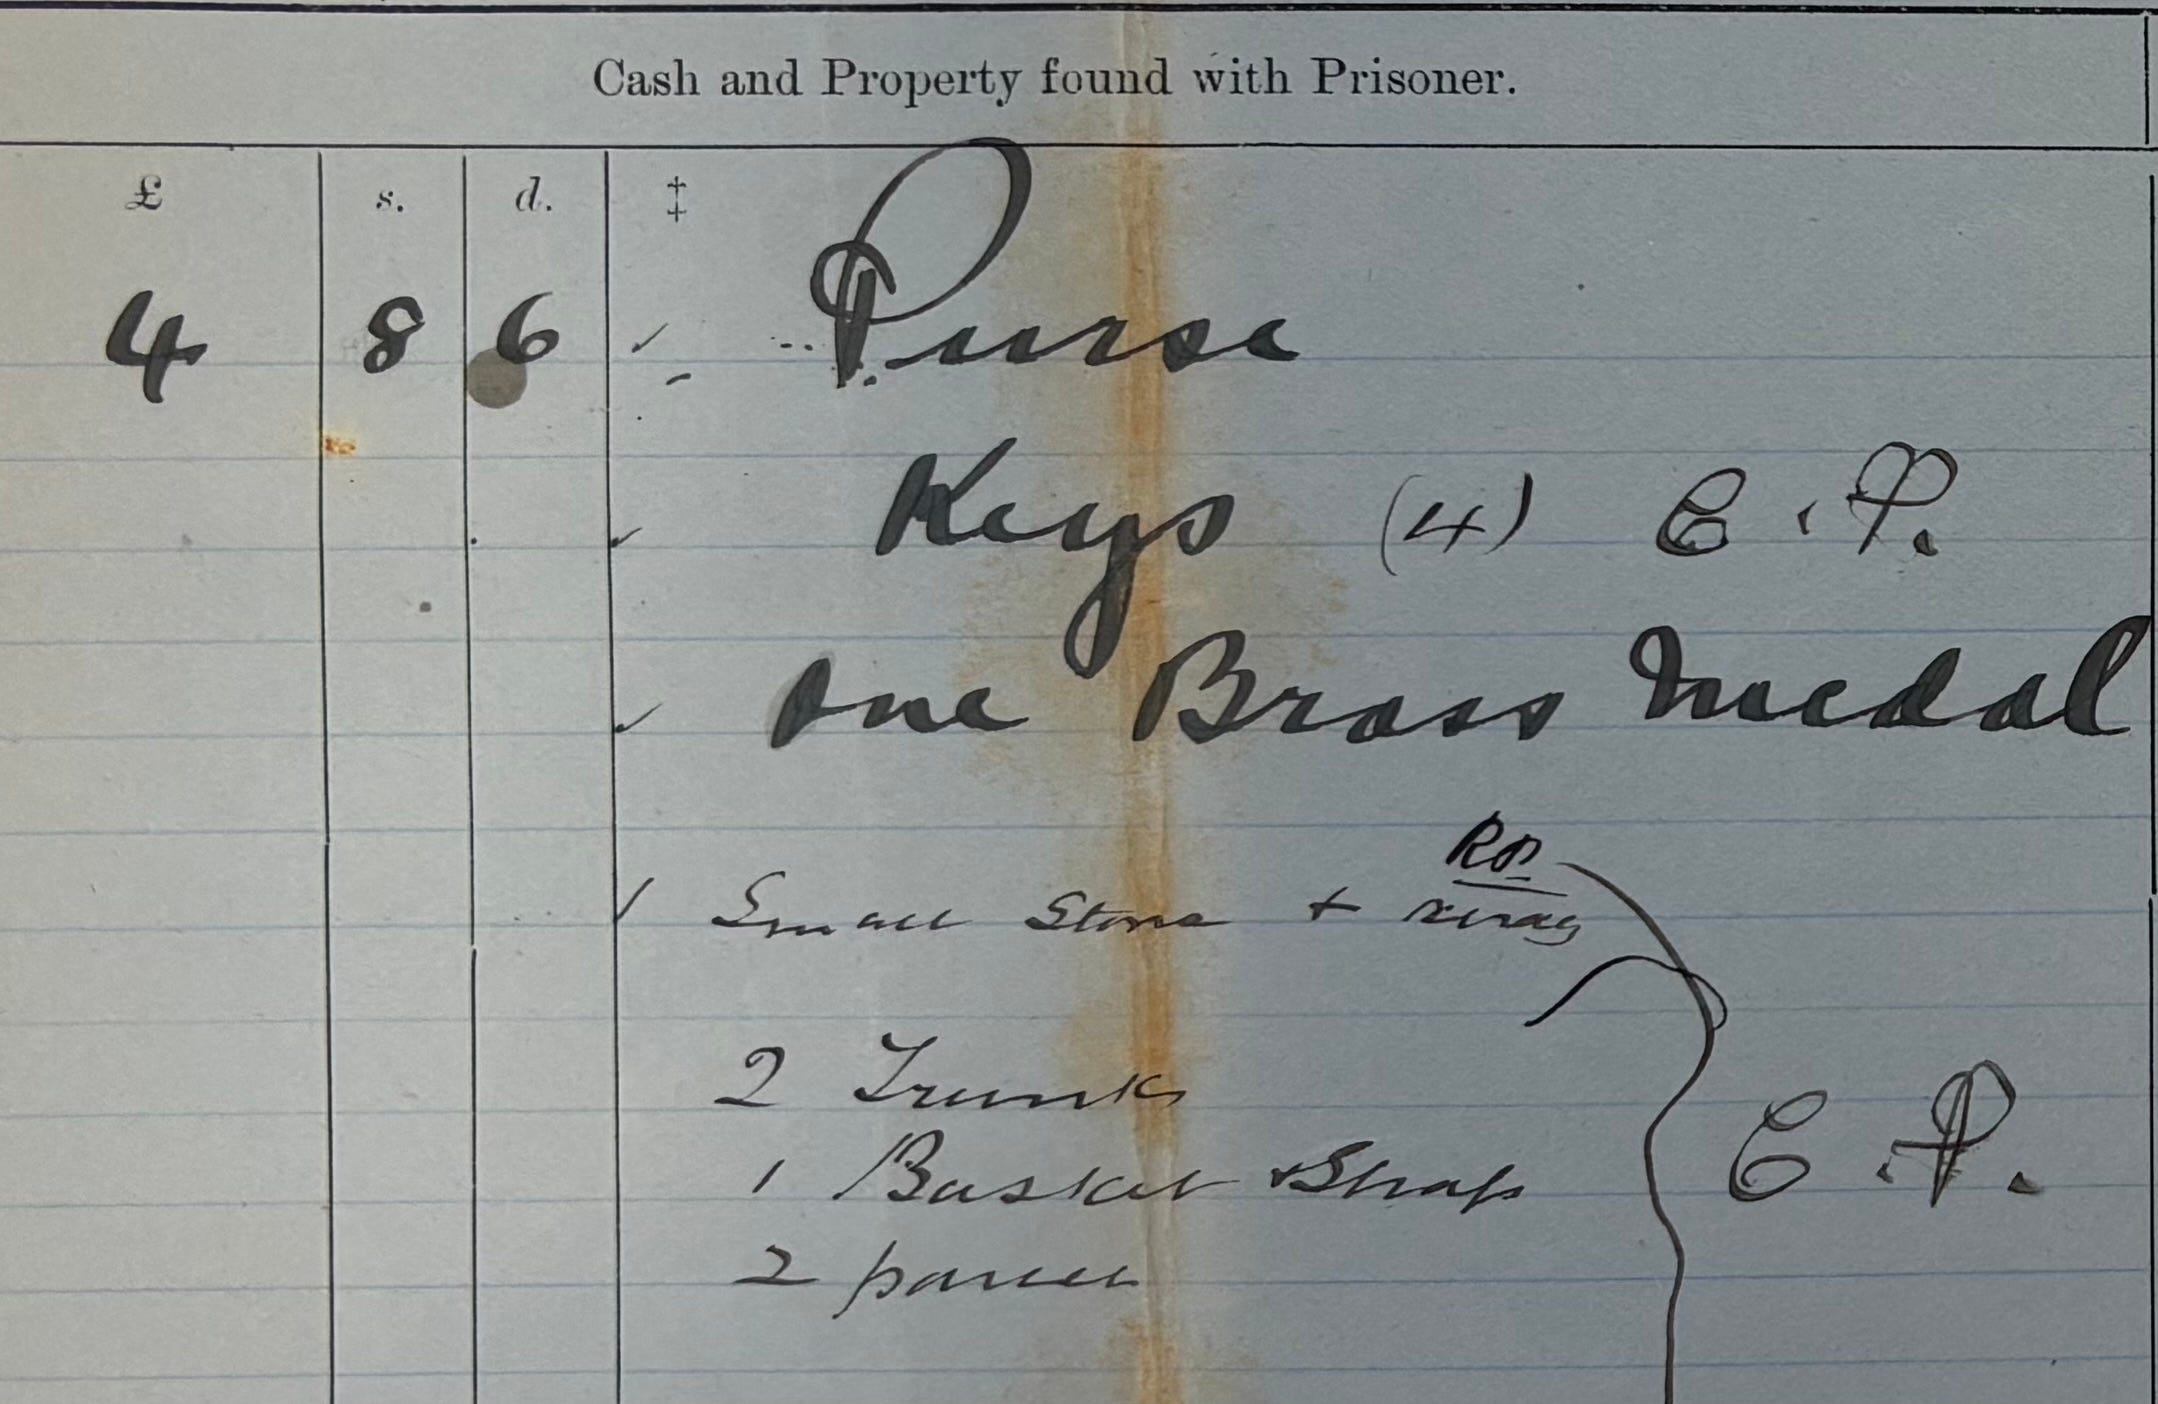 Cash and Property found with Prisoner.
£ s. d. ‡
4 8 6 Purse
Keys (4) C.P.
one Brass Medal
Small Stone +
2 Trunks
1 Basket + Strap
C.P.
2 parcels